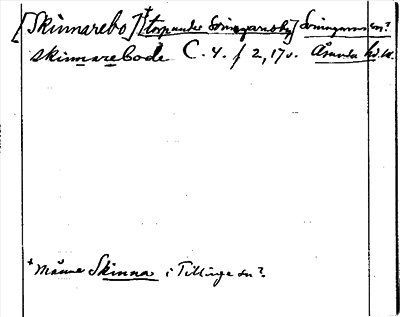 [Skinnarebo] [+torp under Svinegarnsby] Svinegarns sn?
skinnarebode C. 4. f 2, 17 v. Åsunda hd.
+ månne Skinna i Tillinge sn?